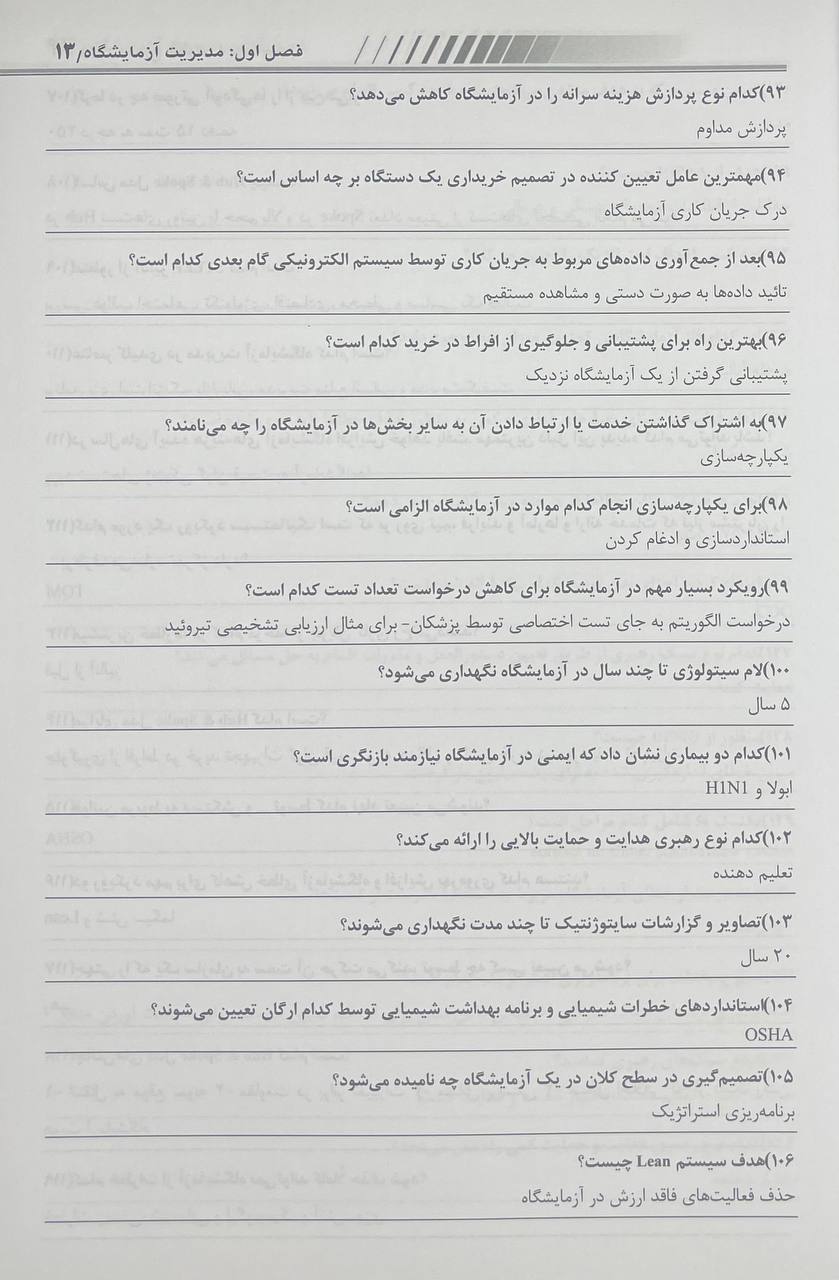 فصل اول: مدیریت آزمایشگاه/۱۳
۹۳)کدام نوع پردازش هزینه سرانه را در آزمایشگاه کاهش می‌دهد؟
پردازش مداوم
۹۴)مهمترین عامل تعیین کننده در تصمیم خریداری یک دستگاه بر چه اساس است؟
درک جریان کاری آزمایشگاه
۹۵)بعد از جمع‌آوری داده‌های مربوط به جریان کاری توسط سیستم الکترونیکی گام بعدی کدام است؟
تائید داده‌ها به صورت دستی و مشاهده مستقیم
۹۶)بهترین راه برای پشتیبانی و جلوگیری از افراط در خرید کدام است؟
پشتیبانی گرفتن از یک آزمایشگاه نزدیک
۹۷)به اشتراک گذاشتن خدمت یا ارتباط دادن آن به سایر بخش‌ها در آزمایشگاه را چه می‌نامند؟
یکپارچه‌سازی
۹۸)برای یکپارچه‌سازی انجام کدام موارد در آزمایشگاه الزامی است؟
استانداردسازی و ادغام کردن
۹۹)رویکرد بسیار مهم در آزمایشگاه برای کاهش درخواست تعداد تست کدام است؟
درخواست الگوریتم به جای تست اختصاصی توسط پزشکان- برای مثال ارزیابی تشخیصی تیروئید
۱۰۰)لام سیتولوژی تا چند سال در آزمایشگاه نگهداری می‌شود؟
۵ سال
۱۰۱)کدام دو بیماری نشان داد که ایمنی در آزمایشگاه نیازمند بازنگری است؟
ابولا و H1N1
۱۰۲)کدام نوع رهبری هدایت و حمایت بالایی را ارائه می‌کند؟
تعلیم دهنده
۱۰۳)تصاویر و گزارشات سایتوژنتیک تا چند مدت نگهداری می‌شوند؟
۲۰ سال
۱۰۴)استانداردهای خطرات شیمیایی و برنامه بهداشت شیمیایی توسط کدام ارگان تعیین می‌شوند؟
OSHA
۱۰۵)تصمیم‌گیری در سطح کلان در یک آزمایشگاه چه نامیده می‌شود؟
برنامه‌ریزی استراتژیک
۱۰۶)هدف سیستم Lean چیست؟
حذف فعالیت‌های فاقد ارزش در آزمایشگاه